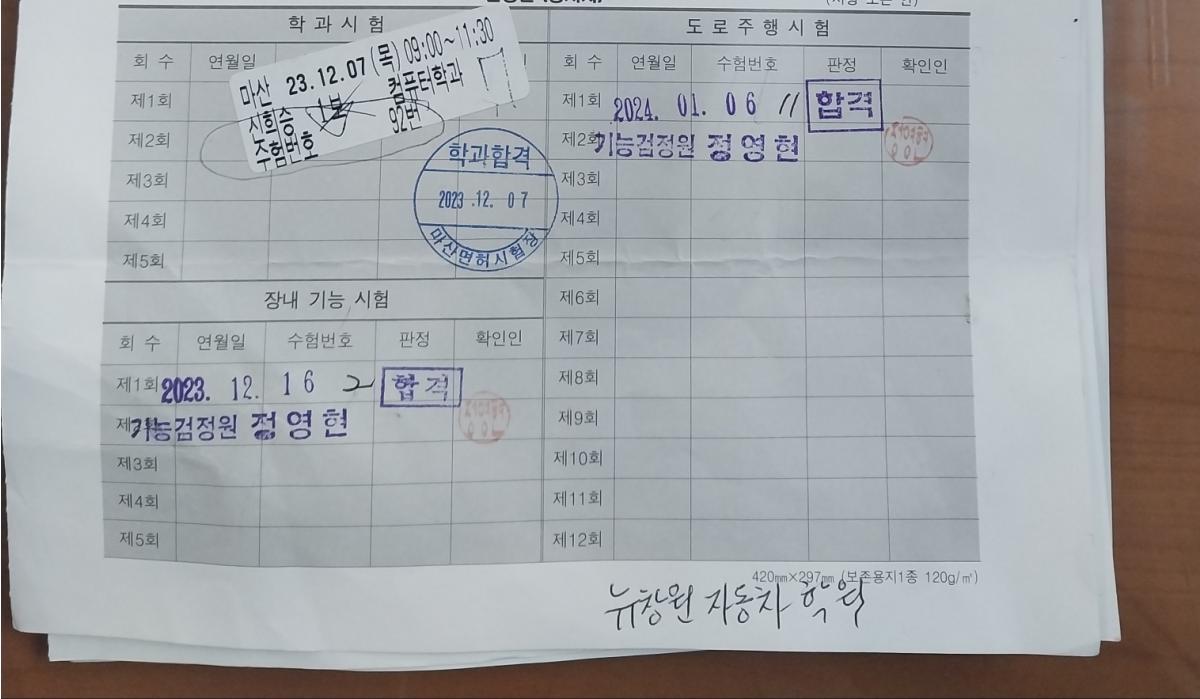 학 과 시 험
회 수 연월일
마산 23.12.07 (목) 09:00~11:30
신희승 1부 컴퓨터학과
수험번호 92번
제1회
제2회
제3회
제4회
제5회
학과합격
2023 .12. 07
마산면허시험장
장내 기능 시험
회 수 연월일 수험번호 판정 확인인
제1회 2023. 12. 16 2 합격
기능검정원 정영현
제3회
제4회
제5회
도 로 주 행 시 험
회 수 연월일 수험번호 판정 확인인
제1회 2024. 01. 06 11 합격
제2회 기능검정원 정영현
제3회
제4회
제5회
제6회
제7회
제8회
제9회
제10회
제11회
제12회
420㎜×297㎜ (보존용지1종 120g/㎡)
뉴창원 자동차 학원